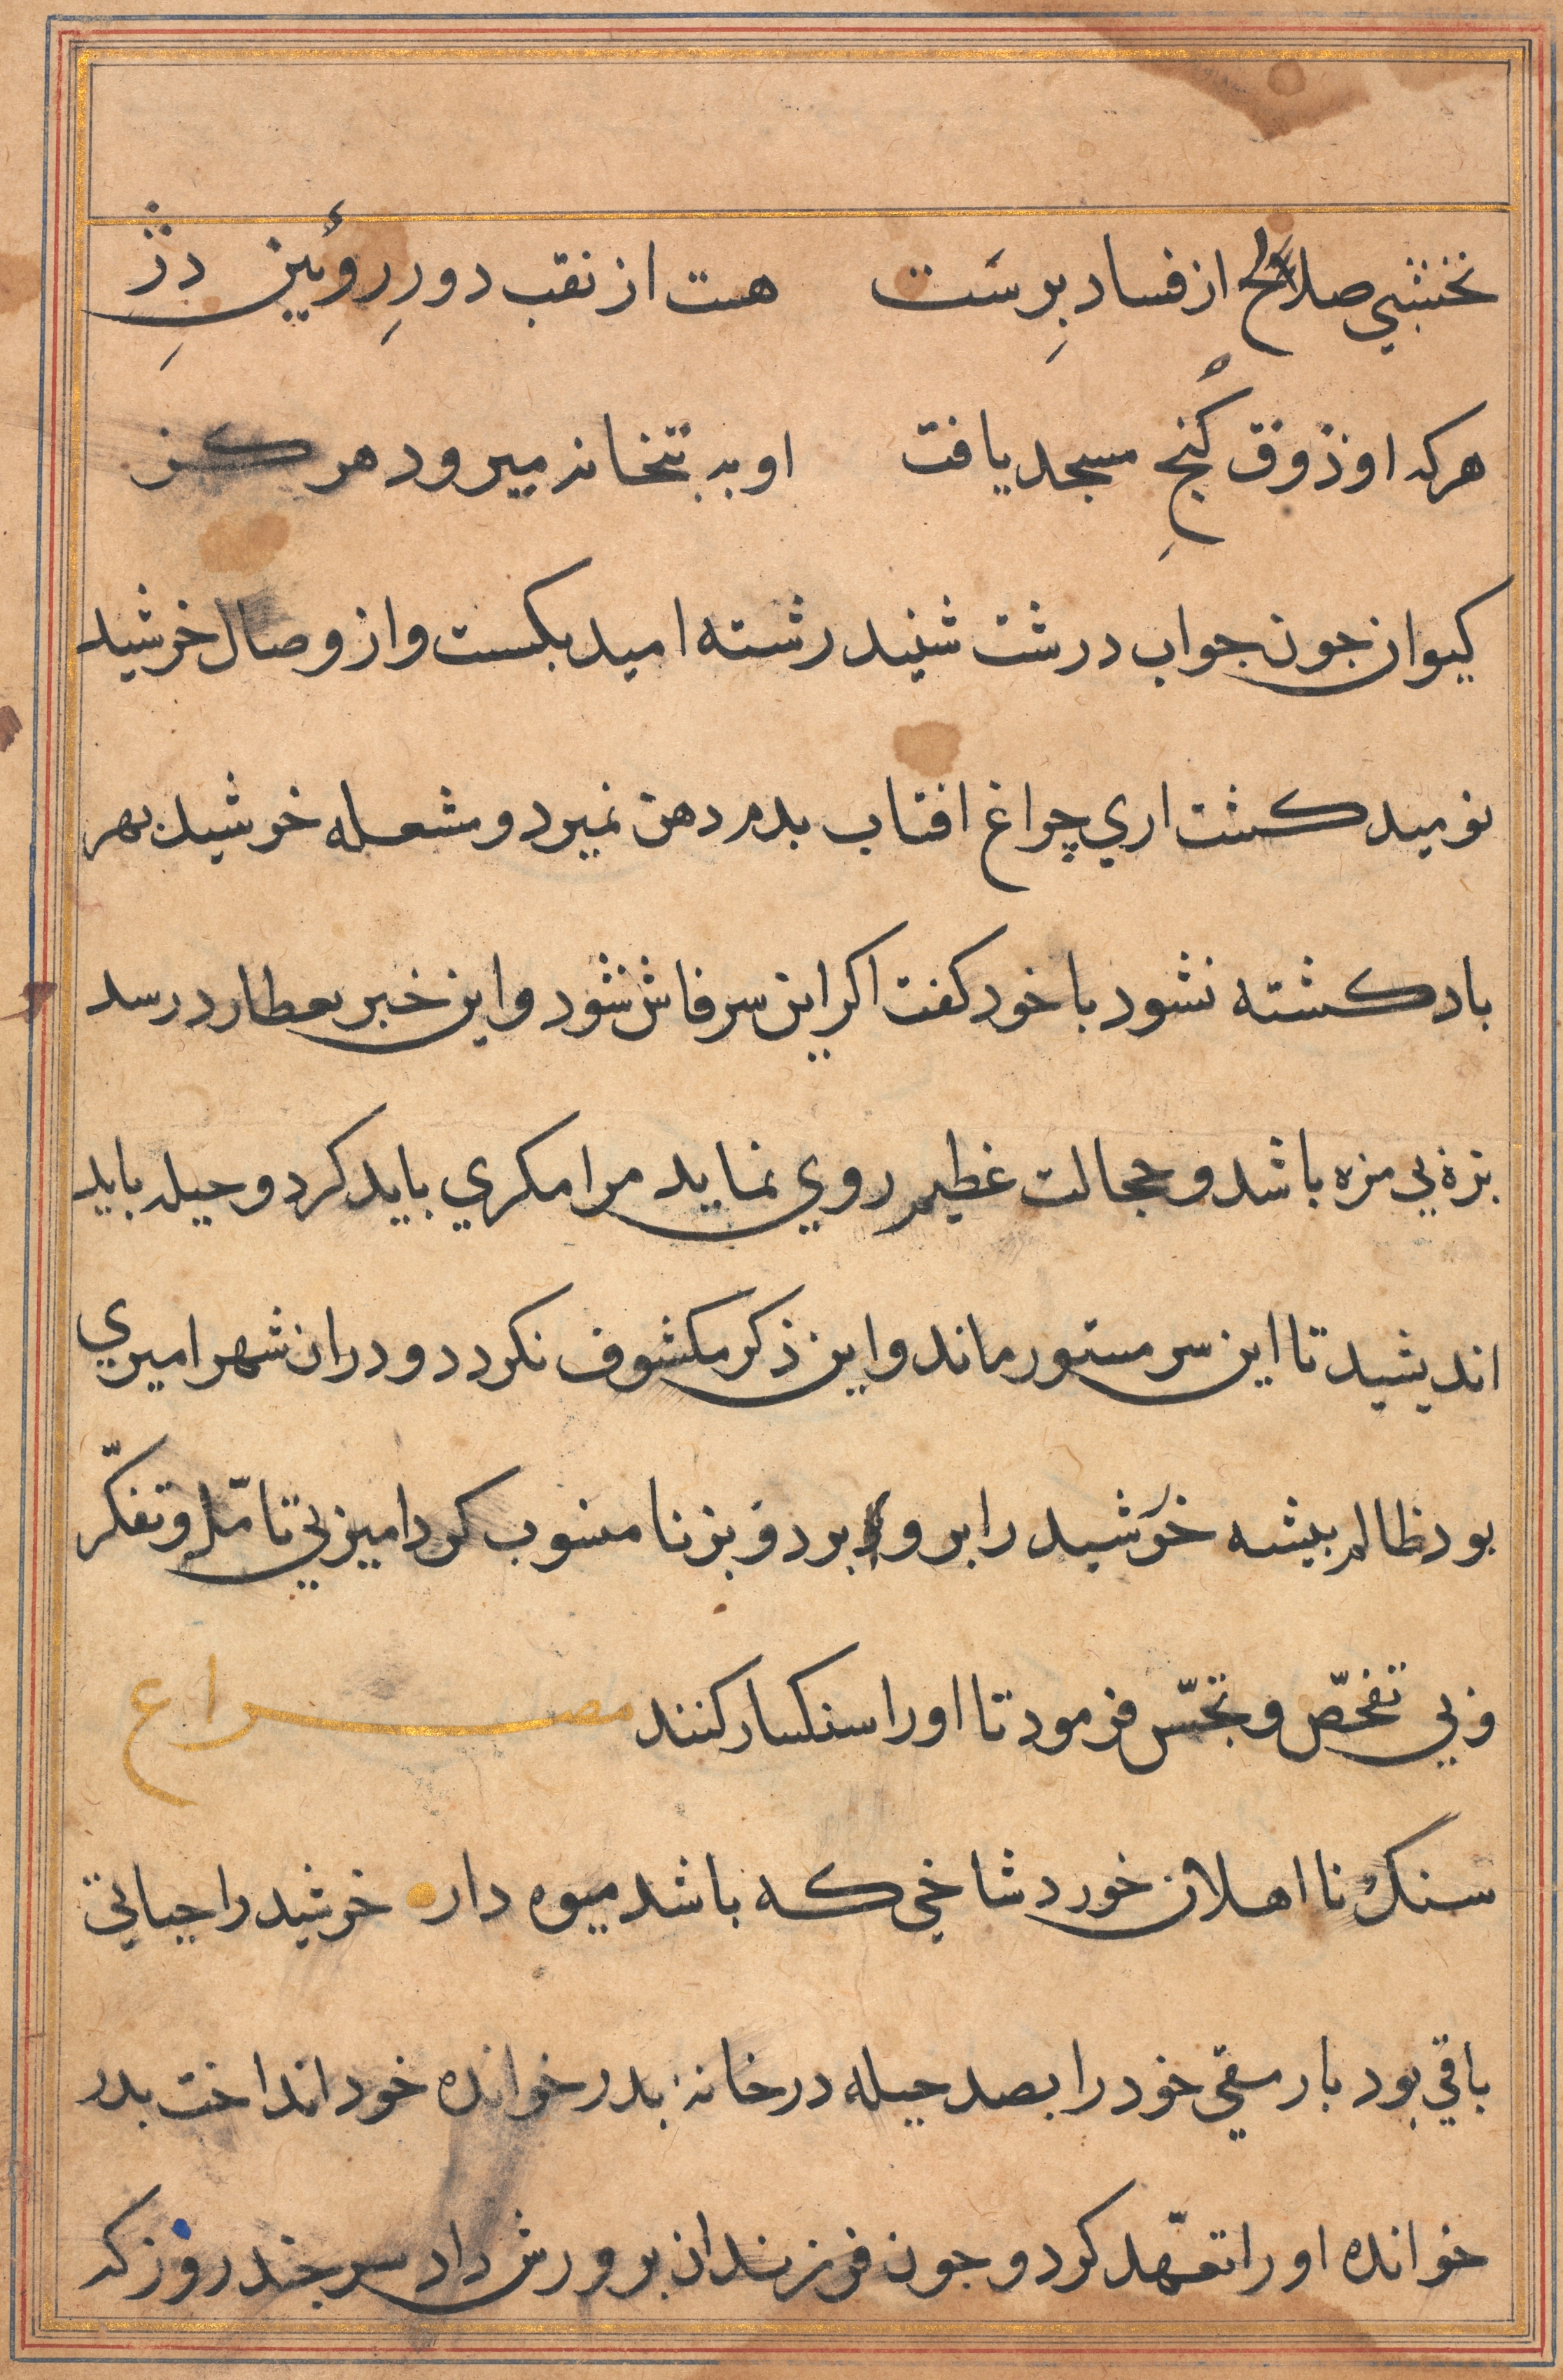 نخشبي صلاح از فساد بِرست هست از نقب دورِ روئین دژِ
هركه او ذوق كُنجِ مسجد یافت او به بتخانه میرود هر كز
كیوان جون جواب درشت شنید رشته امید بكست و از وصال خرشید
نومید كشت اري چراغ افتاب بدم دهن نمیرد و مشعله خرشید بهر
باد كشته نشود با خود كفت اكر این سر فاش شود و این خبر بعطارد رسد
بزۀ بي مزه باشد و خجالت عظیم روي نماید مرا مكري باید كرد و حیله باید
اندیشید تا این سر مستور ماند و این ذكر مكشوف نكردد و دران شهر امیري
بود ظالم بیشه خرشید را برو برد و بزنا منسوب كرد امیر بي تامّل و تفكّر
و بي تفحّص و تجسّس فرمود تا او را سنكسار كنند مصراع
سنك نا اهلان خورد شاخي كه باشد میوه دار خرشید را حیاتي
باقي بود با رمقي خود را بصد حیله در خانۀ بدر خوانده خود انداخت بدر
خوانده او را تعهّد كرد و جون فرزندان برورش داد سر جند روز كه